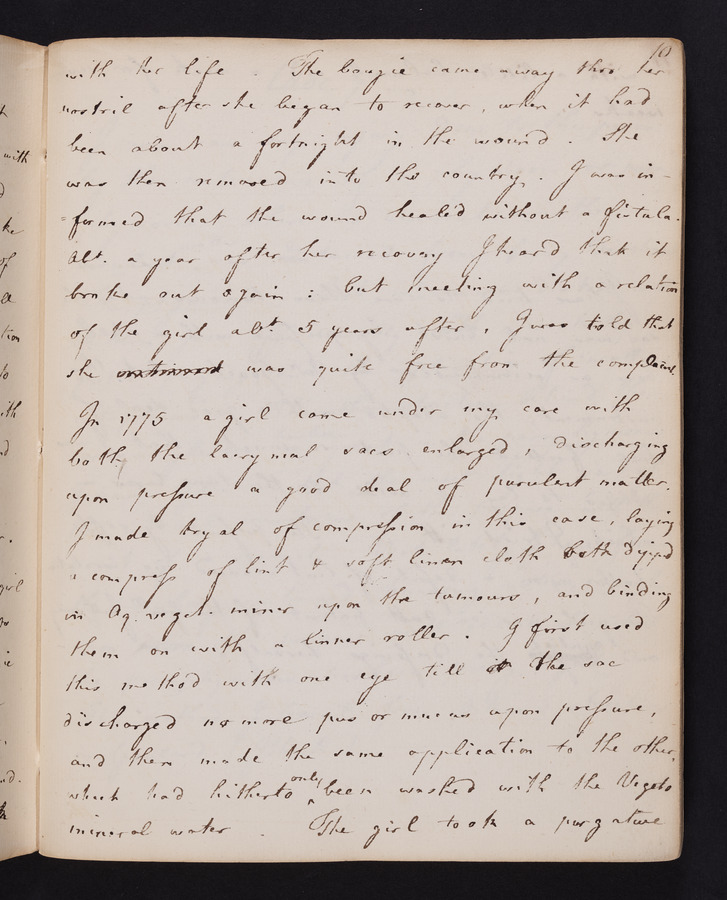 10
with her life . The bougie came away thro' her
nostril after she began to recover, when it had
been about a fortnight in the wound. She
was then removed into the country. I was in-
=formed that the wound heal'd without a fistula.
Abt. a year after her recovery I heard that it
broke out again: but meeting with a relation
of the girl abt. 5 years after, I was told that
she was quite free from the complaint.
In 1775 a girl came under my care with
both the lacrymal sacs enlarged, discharging
upon pressure a good deal of purulent matter.
I made tryal of compression in this case, laying
a compress of lint & soft linen cloth both dipp'd
in Aq. veget. miner upon the tumours, and binding
them on with a linner roller. I first used
this method with one eye till the sac
discharged no more pus or mucus upon pressure,
and then made the same application to the other,
which had hitherto only been washed with the Vegeto
mineral water . The girl took a purgative